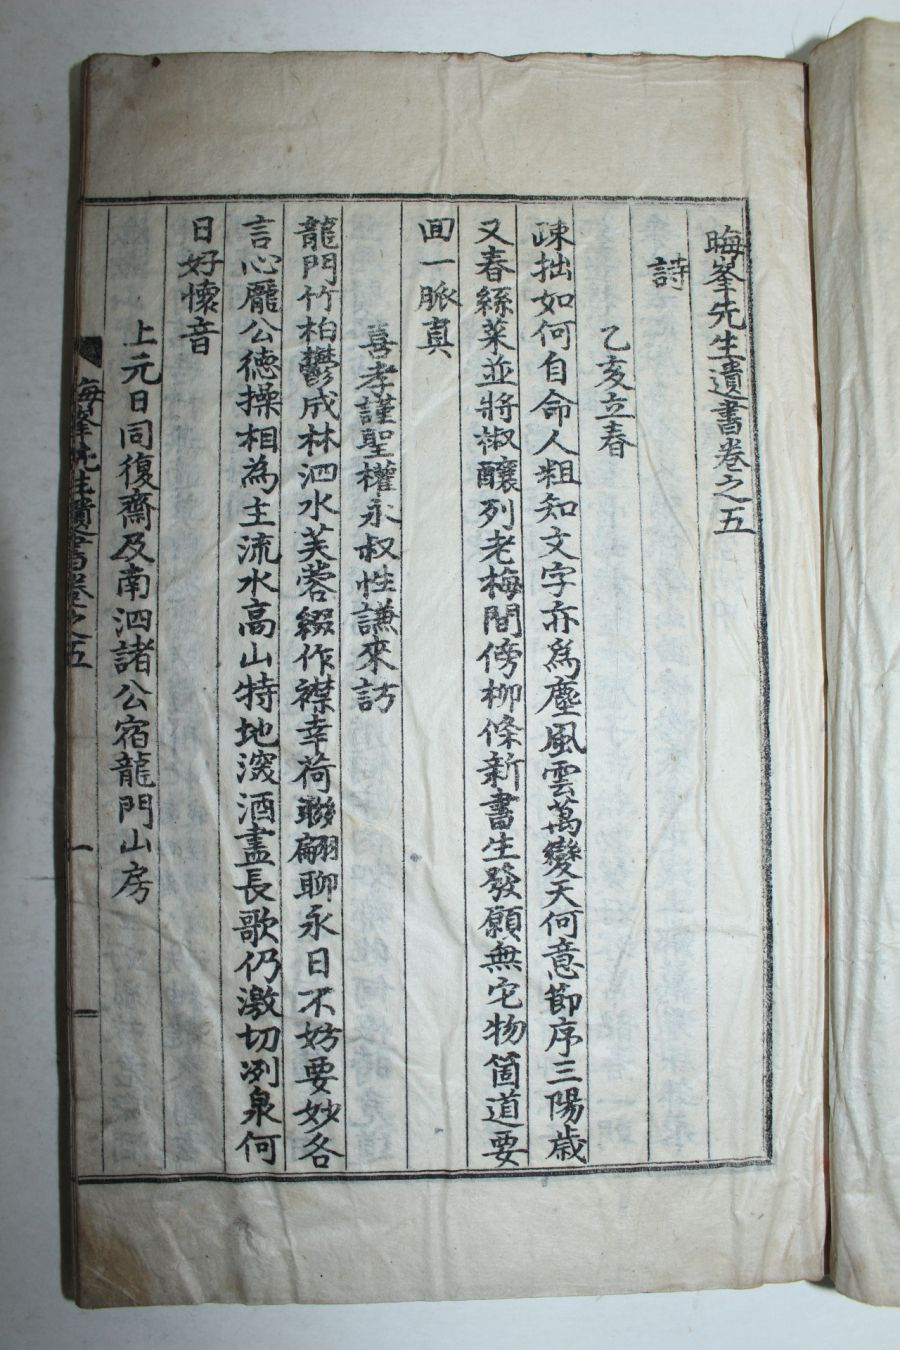 晦峯先生遺書卷之五
詩
乙亥立春
疎拙如何自命人粗知文字亦爲塵風雲萬變天何意節序三陽歲
又春絲菜並將椒釀列老梅間傍柳條新書生發願無宅物箇道要
回一脈眞
喜孝謹聖權永叔性謙來訪
龍門竹柏鬱成林泗水芙蓉綴作襟幸荷聯翩聊永日不妨要妙各
言心龐公德操相為主流水高山特地深酒盡長歌仍激切冽泉何
日好懷音
上元日同復齋及南泗諸公宿龍門山房
晦峯先生遺書卷之五
一